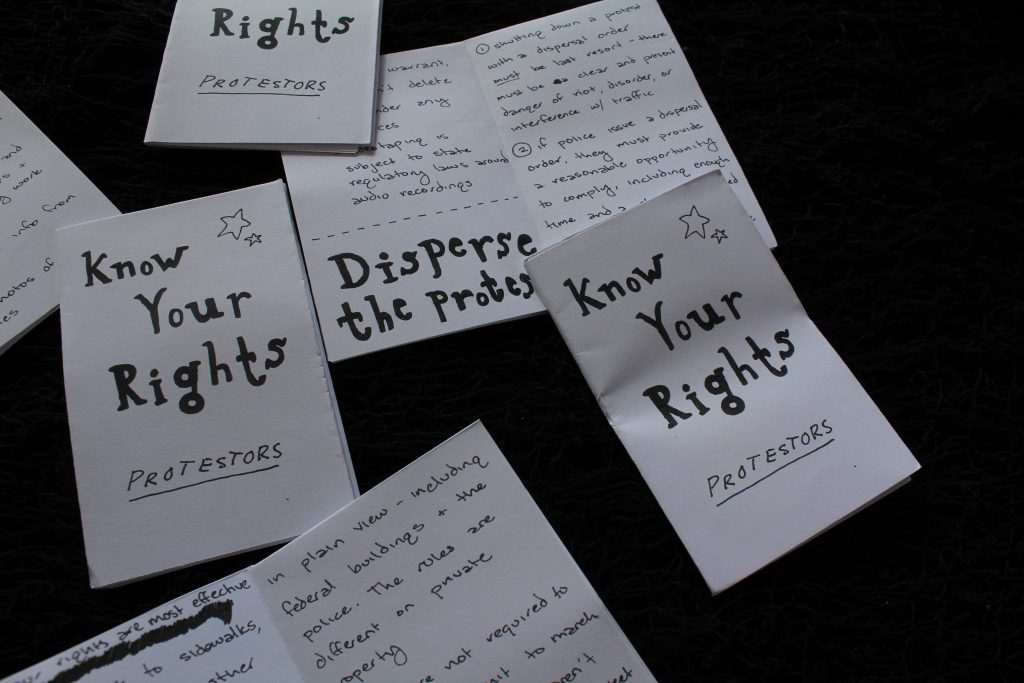 Rights
PROTESTORS
warrant.
delete
any
taping is
subject to state
regulatory laws around
audio recordings
Disperse
the protes
① shutting down a protest
with a dispersal order
must be last resort - there
must be a clear and present
danger of riot, disorder, or
interference w/ traffic
② if police issue a dispersal
order, they must provide
a reasonable opportunity
to comply, including enough
time and a
and
+
work
info from
photos of
Know
Your
Rights
PROTESTORS
Know
Your
Rights
PROTESTORS
rights are most effective
to sidewalks,
in plain view - including
federal buildings + the
police. The rules are
different on private
property
not required to
to march